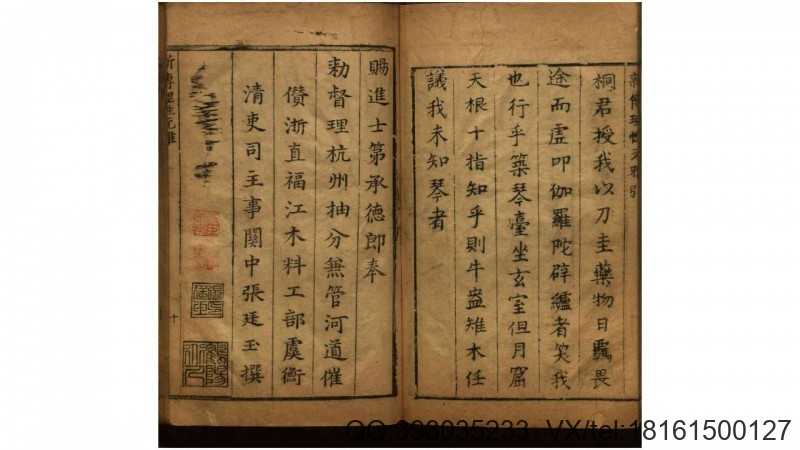 桐君授我以刀圭藥物日驪畏
途而虛叩伽羅陀辟纑者笑我
也行乎築琴臺坐玄室但月窟
天根十指知乎則牛盎雉木任
議我未知琴者
賜進士第承德郎奉
勑督理杭州抽分兼管河道催
儹浙直福江木料工部虞衡
清吏司主事關中張廷玉撰
VX/tel:18161500127